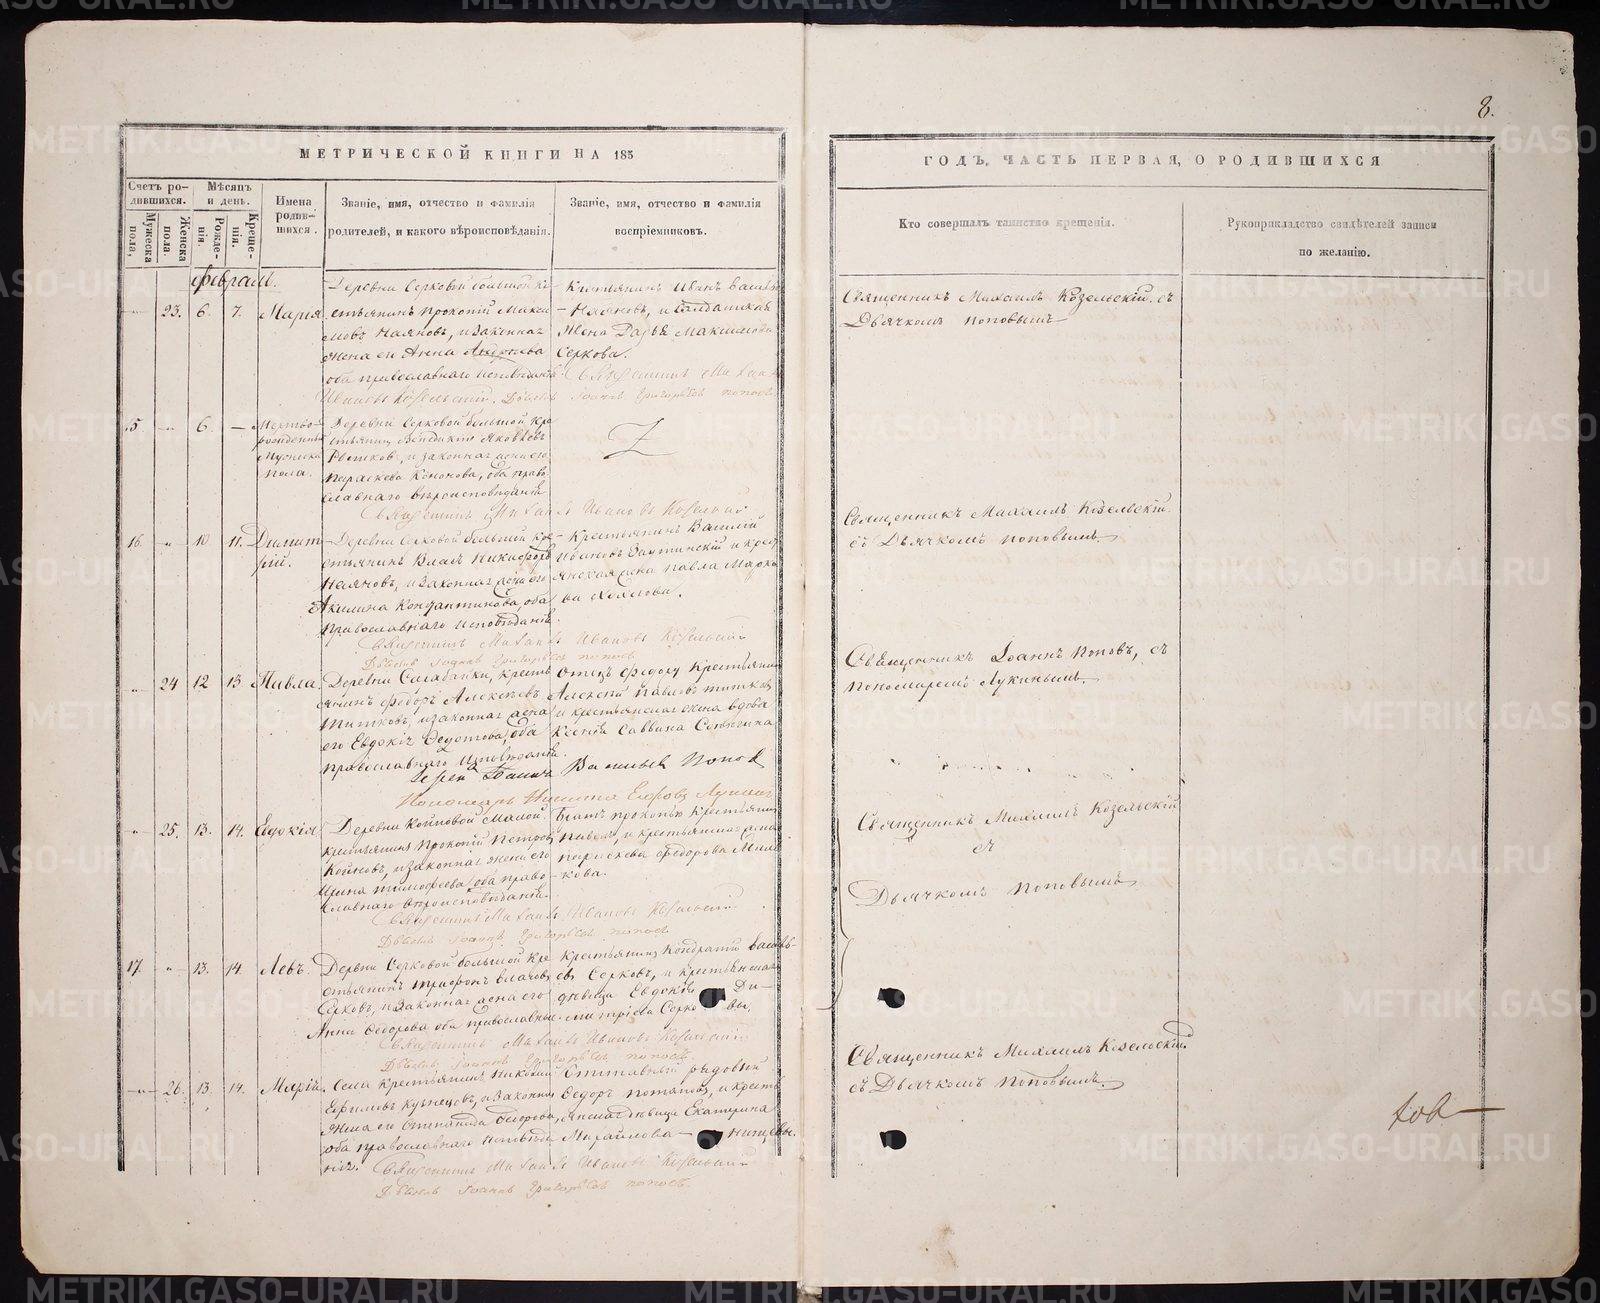 8.
МЕТРИЧЕСКОЙ КНИГИ НА 185
ГОДЪ, ЧАСТЬ ПЕРВАЯ, О РОДИВШИХСЯ
Счетъ ро-
дившихся.
Мужеска
пола,
Женска
пола.
Мѣсяцъ
и день.
Рожде-
нія.
Креще-
нія.
Имена
родив-
шихся.
Званіе, имя, отчество и фамилія
родителей, и какого вѣроисповѣданія.
Званіе, имя, отчество и фамилія
воспріемниковъ.
Кто совершалъ таинство крещенія.
Рукоприкладство свидѣтелей записи
по желанію.
февраль.
23. 6. 7. Марія
Деревни Серковой большой кре-
стьянинъ Прокопій Макси
мовъ Наяновъ, и законная
жена его Анна
оба православнаго исповѣданія
Крестьянинъ Иванъ
Наяновъ, и солдатская
жена Дарья Максимова
Серкова.
Священникъ Михаилъ Козельскій съ
Дьячкомъ Поповымъ
Священникъ Михаилъ
Ивановъ Козельскій. Дьячекъ Іоаннъ Григорьевъ Поповъ
15. 6. Мертво-
рожденный
Мужеска
пола.
Деревни Серковой большой кре
стьянинъ Венедиктъ Яковлевъ
и законная жена его
Параскева Кононова, оба право
славнаго вѣроисповѣданія
Священникъ Михаилъ Ивановъ Козельскій
16. 10 11. Димит-
рій.
Деревни Серковой большой кре
стьянинъ Власъ Никифоровъ
Наяновъ, и законная жена его
Акилина Константинова, оба
православнаго исповѣданія.
Крестьянинъ Василій
Ивановъ и кресть
янская жена Павла Марко
ва
Священникъ Михаилъ Козельскій
съ Дьячкомъ Поповымъ.
Священникъ Михаилъ Ивановъ Козельскій
Дьячекъ Іоаннъ Григорьевъ Поповъ
24 12 13 Павла.
Деревни кресть
янинъ Федоръ Алексѣевъ
Титковъ, и законная жена
его Евдокія Федотова, оба
православнаго исповѣданія.
Отецъ Федору Крестьянинъ
Алексѣй Павловъ Титковъ
и крестьянская жена вдова
Ксенія Саввина
Священникъ Іоаннъ Поповъ, съ
пономаремъ Лукинымъ.
Іерей Іоаннъ Васильевъ Поповъ
Пономарь Никита Егоровъ Лукинъ
25. 13. 14. Евдокія
Деревни Койновой Малой
крестьянинъ Прокопій Петровъ
Койновъ, и законная жена его
Ирина Тимофеева, оба право-
славнаго вѣроисповѣданія.
Братъ Прокопью Крестьянинъ
Павелъ, и крестьянская жена
Параскева Федорова
кова.
Священникъ Михаилъ Козельскій
съ
Дьячкомъ Поповымъ
Священникъ Михаилъ Ивановъ Козельскій
Дьячекъ Іоаннъ Григорьевъ Поповъ
17. 13. 14. Левъ.
Дервни Серковой большой кре
стьянинъ Трифонъ Власовъ
Серковъ, и законная жена его
Анна Федорова оба православные.
Крестьянинъ Кондратій Василь-
евъ Серковъ, и крестьянская
дѣвица Евдокія Ди-
митріева Серковы.
Священникъ Михаилъ Ивановъ Козельскій
Дьячекъ Іоаннъ Григорьевъ Поповъ.
26. 13. 14. Марія.
Села крестьянинъ Николай
Ефимовъ Кузнецовъ, и законная
жена его Степанида Федорова,
оба православнаго исповѣда
нія.
Отставный рядовый
Федоръ Потаповъ, и кресть
янская дѣвица Екатерина
Михайлова
Священникъ Михаилъ Козельскій
съ Дьячкомъ Поповымъ.
Священникъ Михаилъ Ивановъ Козельскій
Дьячекъ Іоаннъ Григорьевъ Поповъ.
ков
METRIKI.GASO-URAL.RU